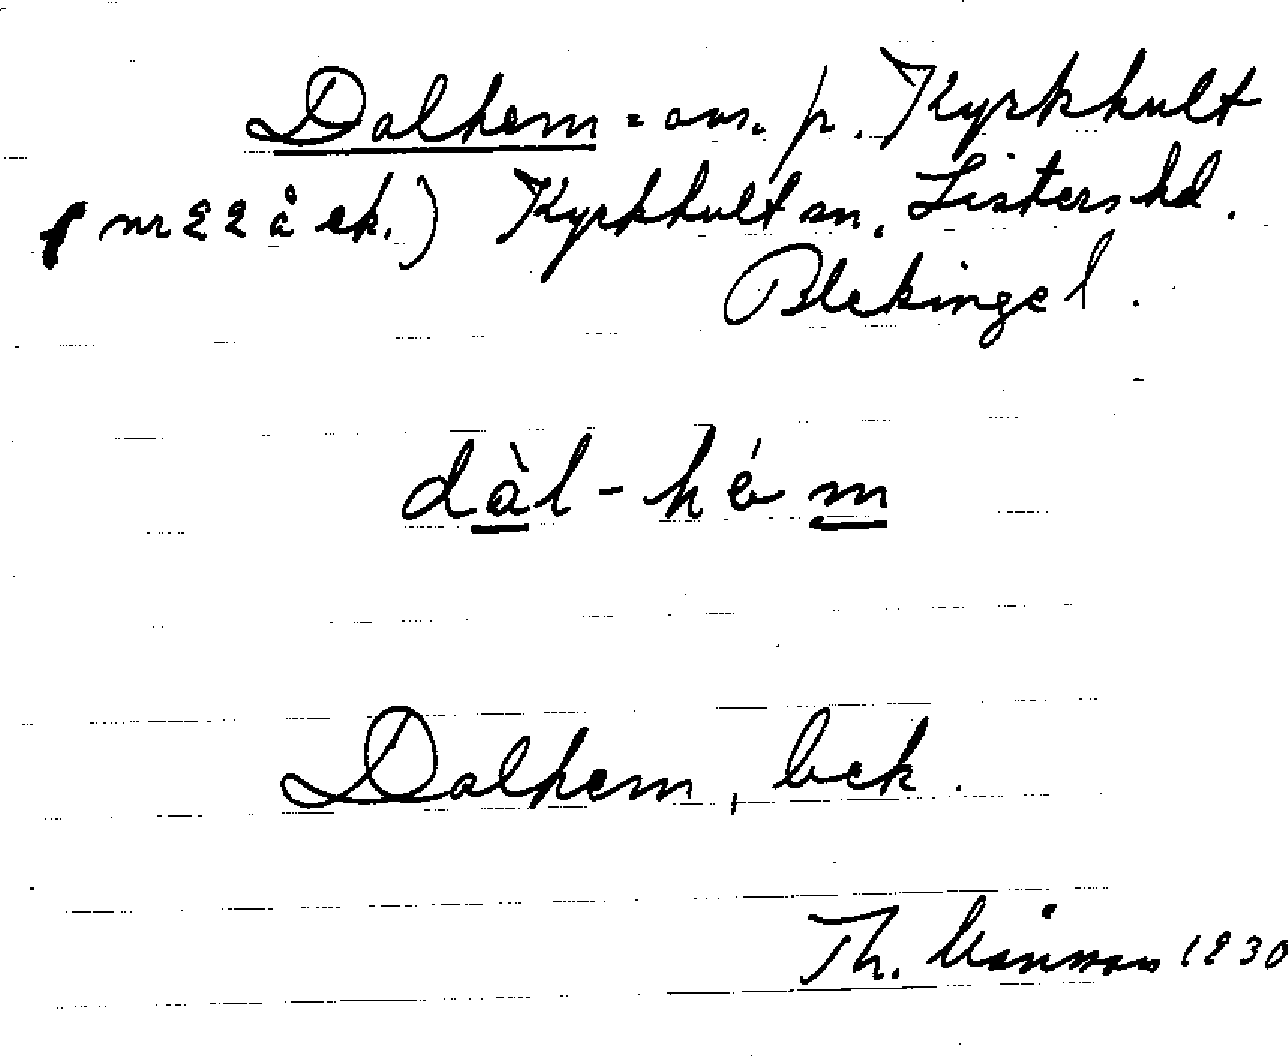 Dalhem = avs. p. Kyrkhult
(nr 22 å ek.) Kyrkhult sn. Listers hd.
Blekinge l.
dàl - hém
Dalhem, bek.
Th. 1930